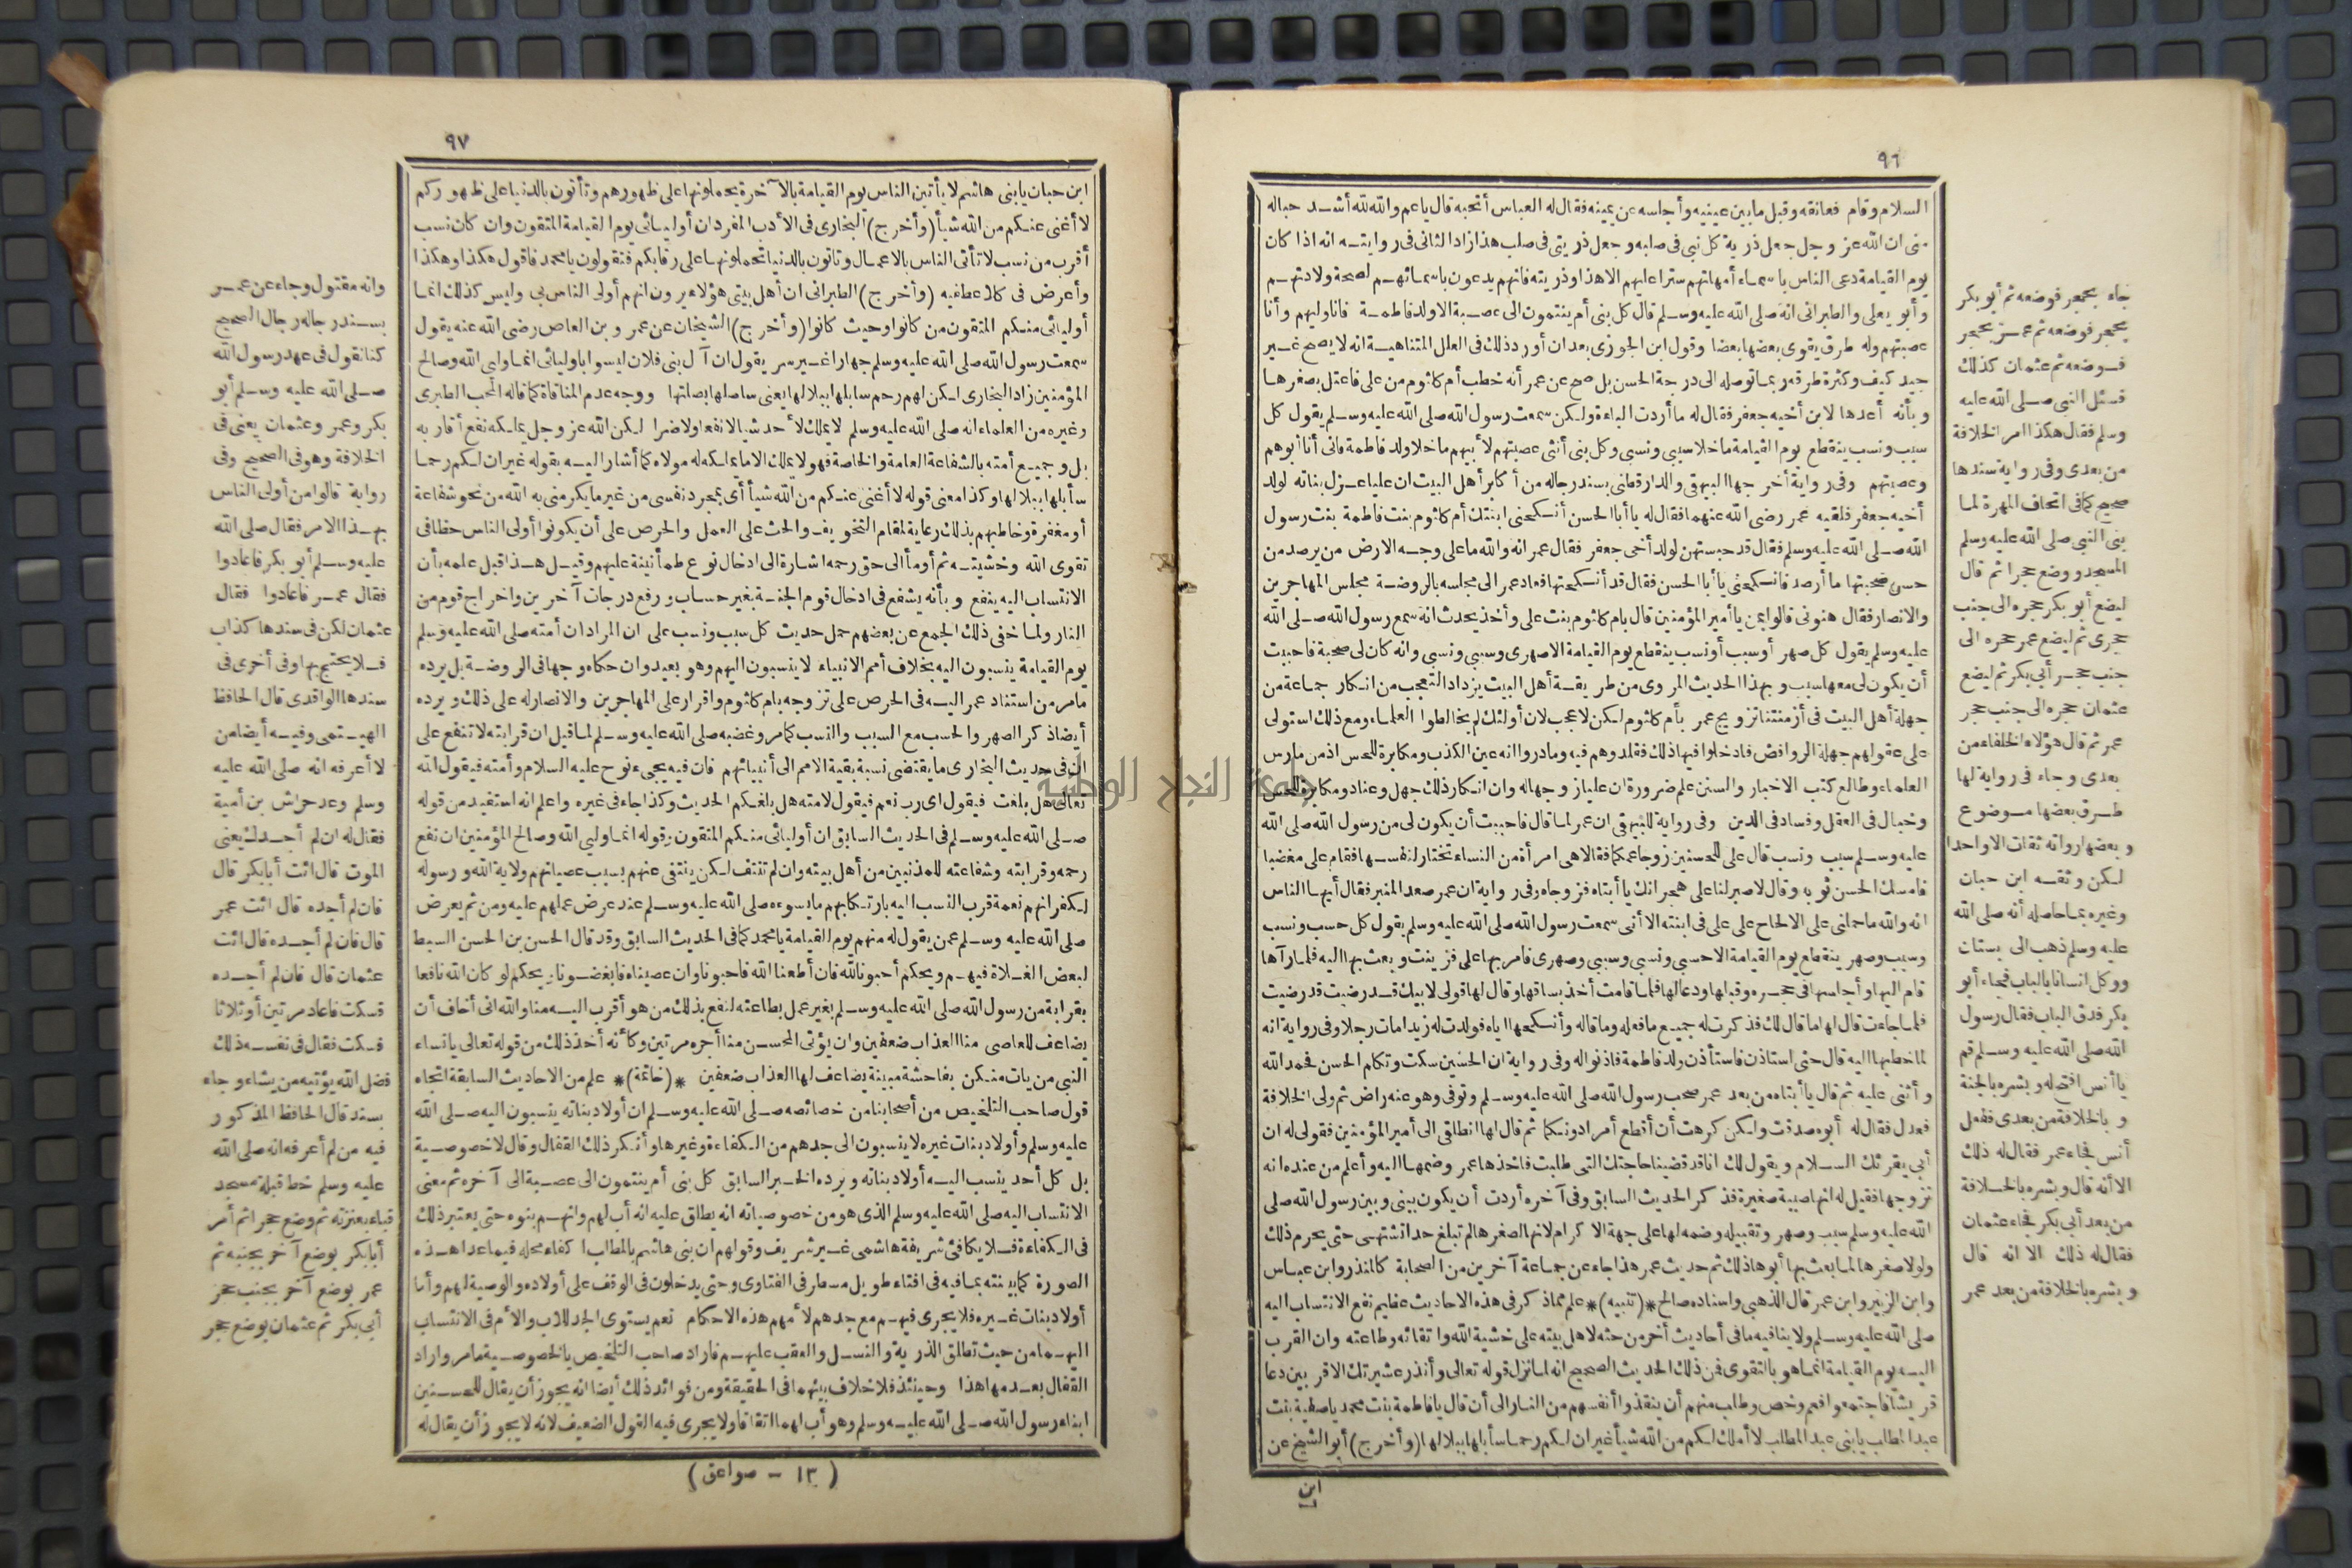 ٩٦
السلام وقام فعانقه وقبل ما بين عينيه وأجلسه عن يمينه فقال له العباس أتحبه قال يا عم والله لله أشد حباله
منى ان الله عز وجل جعل ذرية كل نبي في صلبه وجعل ذريتى في صلب هذا زاد الثانى فى روايته انه اذا كان
يوم القيامة دعى الناس باسماء أمهاتهم سترا عليهم الا هذا وذريته فانهم يدعون باسمائهم لصحة ولادتهم
وأبو يعلى والطبرانى انه صلى الله عليه وسلم قال كل بنى أم ينتمون الى عصبة الا ولد فاطمة فانا وليهم وأنا
عصبتهم وله طرق يقوى بعضها بعضا وقول ابن الجوزى بعد ان أورد ذلك فى العلل المتناهية انه لا يصح غير
جيد كيف وكثرة طرقه ربما توصله الى درجة الحسن بل صح عن عمر أنه خطب أم كلثوم من على فاعتل بصغرها
وبأنه أعدها لابن أخيه جعفر فقال له ما أردت الباءة ولكن سمعت رسول الله صلى الله عليه وسلم يقول كل
سبب ونسب ينقطع يوم القيامة ما خلا سببى ونسبى وكل بنى أنثى عصبتهم لأبيهم ما خلا ولد فاطمة فانى أنا أبوهم
وعصبتهم وفى رواية أخرجها البيهقى والدارقطنى بسند رجاله من أكابر أهل البيت ان عليا عزل بناته لولد
أخيه جعفر فلقيه عمر رضى الله عنهما فقال له يا أبا الحسن أنكحنى ابنتك أم كلثوم بنت فاطمة بنت رسول
الله صلى الله عليه وسلم فقال قد حبستهن لولد أخى جعفر فقال عمر انه والله ما على وجه الارض من يرصد من
حسن صحبتها ما أرصد فانكحنى يا أبا الحسن فقال قد أنكحتها فعاد عمر الى مجلسه بالروضة مجلس المهاجرين
والانصار فقال هنونى قالوا بمن يا أمير المؤمنين قال بأم كلثوم بنت على وأخذ يحدث انه سمع رسول الله صلى الله
عليه وسلم يقول كل صهر أو سبب أو نسب ينقطع يوم القيامة الا صهرى وسببى ونسبى وانه كان لى صحبة فاحببت
أن يكون لى معها سبب وبهذا الحديث المروى من طريقة أهل البيت يزداد التعجب من انكار جماعة من
جهلة أهل البيت فى أزمنتنا تزويج عمر بأم كلثوم لكن لا عجب لان أولئك لم يخالطوا العلماء ومع ذلك استولى
على عقولهم جهلة الروافض فادخلوا فيها ذلك فقلدوهم فيه وما دروا انه عين الكذب ومكابرة للحس اذ من مارس
العلماء وطالع كتب الاخبار والسنن علم ضرورة ان عليا زوجها له وان انكار ذلك جهل وعناد ومكابرة للحس
وخبال فى العقل وفساد فى الدين وفى رواية للبيهقى ان عمر لما قال فاحببت أن يكون لى من رسول الله صلى الله
عليه وسلم سبب ونسب قال على للحسنين زوجا عمكما فقالا هى امرأة من النساء تختار لنفسها فقام على مغضبا
فامسك الحسن ثوبه وقال لا صبر لنا على هجرانك يا أبتاه فزوجاه وفى رواية ان عمر صعد المنبر فقال أيها الناس
انه والله ما حملنى على الالحاح على على فى ابنته الا أنى سمعت رسول الله صلى الله عليه وسلم يقول كل حسب ونسب
وسبب وصهر ينقطع يوم القيامة الا حسبى ونسبى وسببى وصهرى فامر بها على فزينت وبعث بها اليه فلما رآها
قام اليها وأجلسها فى حجره وقبلها ودعا لها فلما قامت أخذ بساقها وقال لها قولى لابيك قد رضيت قد رضيت
فلما جاءت قال لها ما قال لك فذكرت له جميع ما فعله وما قاله وأنكحها اياه فولدت له زيدا مات رجلا وفى رواية انه
لما خطبها اليه قال حتى استاذن فاستأذن ولد فاطمة فاذنوا له وفى رواية ان الحسين سكت وتكلم الحسن فحمد الله
وأثنى عليه ثم قال يا أبتاه من بعد عمر صحب رسول الله صلى الله عليه وسلم وتوفى وهو عنه راض ثم ولى الخلافة
فعدل فقال له أبوه صدقت ولكن كرهت أن أقطع أمرا دونكما ثم قال لها انطلقى الى أمير المؤمنين فقولى له ان
أبى يقرئك السلام ويقول لك انا قد قضينا حاجتك التى طلبت فاخذها عمر وضمها اليه وأعلم من عنده انه
تزوجها فقيل له انها صبية صغيرة فذكر الحديث السابق وفى آخره أردت أن يكون بينى وبين رسول الله صلى
الله عليه وسلم سبب وصهر وتقبيله وضمه لها على جهة الاكرام لانها لصغرها لم تبلغ حدا تشتهى حتى يحرم ذلك
ولولا صغرها لما بعث بها أبوها ذلك ثم حديث عمر هذا جاء عن جماعة آخرين من الصحابة كالمنذر وابن عباس
وابن الزبير وابن عمر قال الذهبى واسناده صالح *(تنبيه)* علم مما ذكر فى هذه الاحاديث عظيم نفع الانتساب اليه
صلى الله عليه وسلم ولا ينافيه ما فى أحاديث أخر من حثه لاهل بيته على خشية الله واتقائه وطاعته وان القرب
اليه يوم القيامة انما هو بالتقوى فمن ذلك الحديث الصحيح انه لما نزل قوله تعالى وأنذر عشيرتك الاقربين دعا
قريشا فاجتمعوا فعم وخص وطلب منهم أن ينقذوا أنفسهم من النار الى أن قال يا فاطمة بنت محمد يا صفية بنت
عبد المطلب يا بنى عبد المطلب لا أملك لكم من الله شيأ غير ان لكم رحما سأبلها ببلالها (وأخرج) أبو الشيخ عن
ابن
جاء بحجر فوضعه ثم أبو بكر
بحجر فوضعه ثم عمر بحجر
فوضعه ثم عثمان كذلك
فسئل النبى صلى الله عليه
وسلم فقال هكذا امر الخلافة
من بعدى وفى رواية سندها
صحيح كما فى اتحاف المهرة لما
بنى النبى صلى الله عليه وسلم
المسجد ووضع حجرا ثم قال
ليضع أبو بكر حجره الى جنب
حجرى ثم ليضع عمر حجره الى
جنب حجر أبى بكر ثم ليضع
عثمان حجره الى جنب حجر
عمر ثم قال هؤلاء الخلفاء من
بعدى وجاء فى رواية لها
طرق بعضها موضوع
وبعضها رواته ثقات الا واحدا
لكن وثقه ابن حبان
وغيره بما حاصله أنه صلى الله
عليه وسلم ذهب الى بستان
ووكل انسانا بالباب فجاء أبو
بكر فدق الباب فقال رسول
الله صلى الله عليه وسلم قم
يا أنس افتح له وبشره بالجنة
وبالخلافة من بعدى ففعل
أنس فجاء عمر فقال له ذلك
الا أنه قال وبشره بالخلافة
من بعد أبى بكر فجاء عثمان
فقال له ذلك الا انه قال
وبشره بالخلافة من بعد عمر
٩٧
ابن حبان يا بنى هاشم لا يأتين الناس يوم القيامة بالآخرة يحملونها على ظهورهم وتأتون بالدنيا على ظهوركم
لا أغنى عنكم من الله شيأ (وأخرج) البخارى فى الأدب المفرد ان أوليائى يوم القيامة المتقون وان كان نسب
أقرب من نسب لا تأتى الناس بالاعمال وتاتون بالدنيا تحملونها على رقابكم فتقولون يا محمد فاقول هكذا وهكذا
وأعرض فى كلا عطفيه (وأخرج) الطبرانى ان أهل بيتى هؤلاء يرون انهم أولى الناس بى وليس كذلك انما
أوليائى منكم المتقون من كانوا وحيث كانوا (وأخرج) الشيخان عن عمرو بن العاص رضى الله عنه يقول
سمعت رسول الله صلى الله عليه وسلم جهارا غير سر يقول ان آل بنى فلان ليسوا باوليائى انما وليى الله وصالح
المؤمنين زاد البخارى لكن لهم رحم سابلها ببلالها يعنى ساصلها بصلتها ووجه عدم المنافاة كما قاله المحب الطبرى
وغيره من العلماء انه صلى الله عليه وسلم لا يملك لأحد شيا لا نفعا ولا ضرا لكن الله عز وجل يملكه نفع أقاربه
بل وجميع أمته بالشفاعة العامة والخاصة فهو لا يملك الا ما يملكه له مولاه كما أشار اليه بقوله غير ان لكم رحما
سأبلها ببلالها وكذا معنى قوله لا أغنى عنكم من الله شيأ أى بمجرد نفسى من غير ما يكرمنى به الله من نحو شفاعة
أو مغفرة وخاطبهم بذلك رعاية لمقام التخويف والحث على العمل والحرص على أن يكونوا أولى الناس حظا فى
تقوى الله وخشيته ثم أومأ الى حق رحمه اشارة الى ادخال نوع طمأنينة عليهم وقيل هذا قبل علمه بأن
الانتساب اليه ينفع وبأنه يشفع فى ادخال قوم الجنة بغير حساب ورفع درجات آخرين واخراج قوم من
النار ولما خفى ذلك الجمع عن بعضهم حمل حديث كل سبب ونسب على ان المراد ان أمته صلى الله عليه وسلم
يوم القيامة ينسبون اليه بخلاف أمم الانبياء لا ينسبون اليهم وهو بعيد وان حكاه وجها فى الروضة بل يرده
ما مر من استناد عمر اليه فى الحرص على تزوجه بأم كلثوم واقرار على المهاجرين والانصار له على ذلك ويرده
أيضا ذكر الصهر والحسب مع السبب والنسب كما مر وغضبه صلى الله عليه وسلم لما قيل ان قرابته لا تنفع على
ان فى حديث البخارى ما يقتضى نسبة بقية الامم الى أنبيائهم فان فيه يجىء نوح عليه السلام وأمته فيقول الله
تعالى هل بلغت فيقول اى رب نعم فيقول لامته هل بلغكم الحديث وكذا جاء فى غيره واعلم انه استفيد من قوله
صلى الله عليه وسلم فى الحديث السابق ان أوليائى منكم المتقون وقوله انما وليى الله وصالح المؤمنين ان نفع
رحمه وقرابته وشفاعته للمذنبين من أهل بيته وان لم تنتف لكن ينتفى عنهم بسبب عصيانهم ولاية الله ورسوله
لكفرانهم نعمة قرب النسب اليه بارتكابهم ما يسوءه صلى الله عليه وسلم عند عرض عملهم عليه ومن ثم يعرض
صلى الله عليه وسلم عمن يقول له منهم يوم القيامة يا محمد كما فى الحديث السابق وقد قال الحسن بن الحسن السبط
لبعض الغلاة فيهم ويحكم أحبونا لله فان أطعنا الله فاحبونا وان عصيناه فابغضونا ويحكم لو كان الله نافعا
بقرابة من رسول الله صلى الله عليه وسلم بغير عمل بطاعته لنفع بذلك من هو أقرب اليه منا والله انى أخاف أن
يضاعف للعاصى منا العذاب ضعفين وان يؤتى المحسن منا أجره مرتين وكأنه أخذ ذلك من قوله تعالى يا نساء
النبى من يات منكن بفاحشة مبينة يضاعف لها العذاب ضعفين *(خاتمة)* علم من الاحاديث السابقة اتجاه
قول صاحب التلخيص من أصحابنا من خصائصه صلى الله عليه وسلم ان أولاد بناته ينسبون اليه صلى الله
عليه وسلم وأولاد بنات غيره لا ينسبون الى جدهم من الكفاءة وغيرها وأنكر ذلك القفال وقال لا خصوصية
بل كل أحد ينسب اليه أولاد بناته ويرده الخبر السابق كل بنى أم ينتمون الى عصبة الى آخره ثم معنى
الانتساب اليه صلى الله عليه وسلم الذى هو من خصوصياته انه يطلق عليه انه أب لهم وانهم بنوه حتى يعتبر ذلك
فى الكفاءة فلا يكافئ شريفة هاشمى غير شريف وقولهم ان بنى هاشم بالمطلب اكفاء محله فيما عدا هذه
الصورة كما بينته بما فيه فى افتاء طويل مسطر فى الفتاوى وحتى يدخلون فى الوقف على أولاده والوصية لهم وأما
أولاد بنات غيره فلا يجرى فيهم مع جدهم لأمهم هذه الاحكام نعم يستوى الجد للاب والأم فى الانتساب
اليهما من حيث تطلق الذرية والنسل والعقب عليهم فاراد صاحب التلخيص بالخصوصية ما مر واراد
القفال بعدمها هذا وحينئذ فلا خلاف بينهما فى الحقيقة ومن فوائد ذلك أيضا انه يجوز أن يقال للحسنين
ابناء رسول الله صلى الله عليه وسلم وهو أب لهما اتفاقا ولا يجرى فيه القول الضعيف لانه لا يجوز أن يقال له
(١٣ - صواعق)
وانه مقتول وجاء عن عمر
بسند رجاله رجال الصحيح
كنا نقول فى عهد رسول الله
صلى الله عليه وسلم أبو
بكر وعمر وعثمان يعنى فى
الخلافة وهو فى الصحيح وفى
رواية قالوا من أولى الناس
بهذا الامر فقال صلى الله
عليه وسلم أبو بكر فاعادوا
فقال عمر فاعادوا فقال
عثمان لكن فى سندها كذاب
فلا يحتج بها وفى أخرى فى
سندها الواقدى قال الحافظ
الهيتمى وفيه أيضا من
لا أعرفه انه صلى الله عليه
وسلم وعد حراش بن أمية
فقال له ان لم أجدك يعنى
الموت قال ائت أبا بكر قال
فان لم أجده قال ائت عمر
قال فان لم أجده قال ائت
عثمان قال فان لم أجده
فسكت فاعاد مرتين أو ثلاثا
فسكت فقال فى نفسه ذلك
فضل الله يؤتيه من يشاء وجاء
بسند قال الحافظ المذكور
فيه من لم أعرفه انه صلى الله
عليه وسلم خط قبلة مسجد
قباء بعنزته ثم وضع حجرا ثم أمر
أبا بكر بوضع آخر بجنبه ثم
عمر بوضع آخر بجنب حجر
أبى بكر ثم عثمان بوضع حجر
جامعة النجاح الوطنية